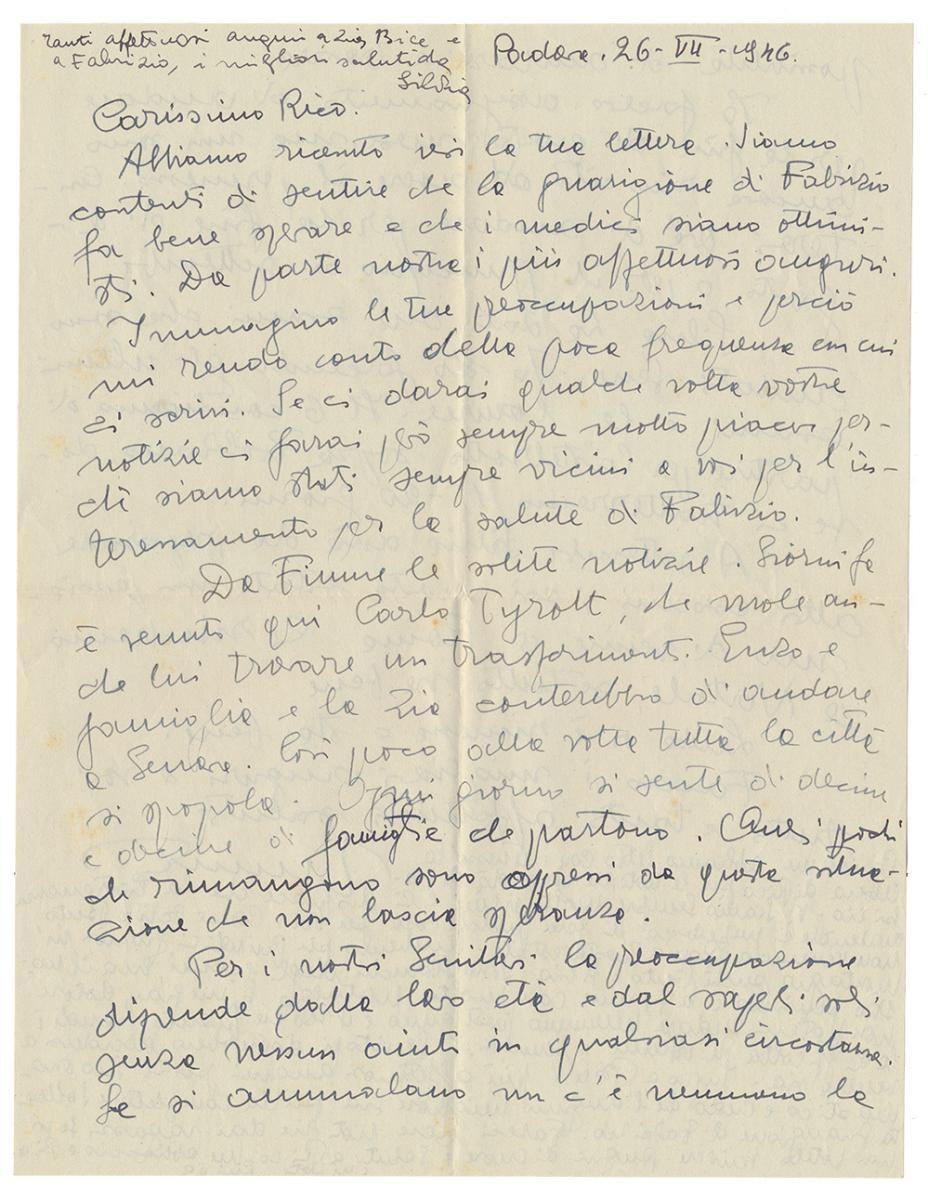 Tanti affettuosi auguri a Zia Bice e
a Fabrizio, i migliori saluti da
Silvia
Padova. 26 - VII - 1946.
Carissimo Rico.
Abbiamo ricevuto ieri la tua lettera. Siamo
contenti di sentire che la guarigione di Fabrizio
fa bene sperare e che i medici siano ottimi-
sti. Da parte nostra i più affettuosi auguri.
Immagino le tue preoccupazioni e perciò
mi rendo conto della poca frequenza con cui
ci scrivi. Se ci darai qualche volta vostre
notizie ci farai però sempre molto piacere per-
chè siamo stati sempre vicini a voi per l'in-
teressamento per la salute di Fabrizio.
Da Fiume le solite notizie. Giorni fa
è venuto qui Carlo Tyrolt, che vuole an-
che lui trovare un trasferimento. Enzo e
famiglia e la Zia conterebbo di andare
a Genova. Così poco alla volta tutta la città
si spopola. Ogni giorno si sente di decine
e decine di famiglie che partono. Quei pochi
che rimangono sono oppressi da questa situa-
zione che non lascia speranze.
Per i nostri Genitori la preoccupazione
dipende dalla loro età e dal saperli soli
senza nessun aiuto in qualsiasi circostanza.
Se si ammalano non c'è nemmeno la